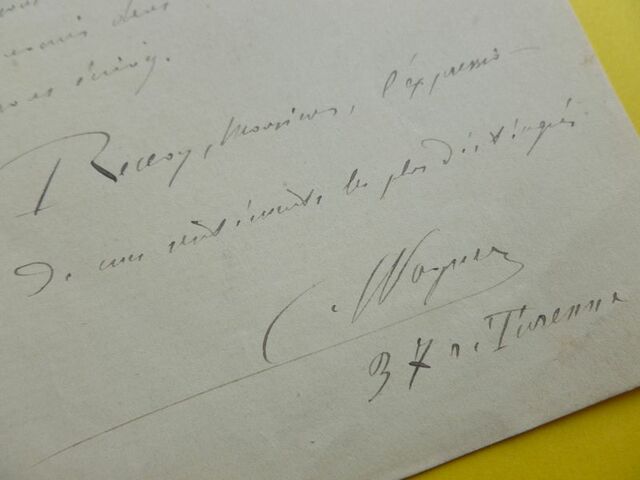 vous
Recevez, Monsieur, l'expression
de mes sentiments les plus distingués.
C. Wagner
37 r. Turenne